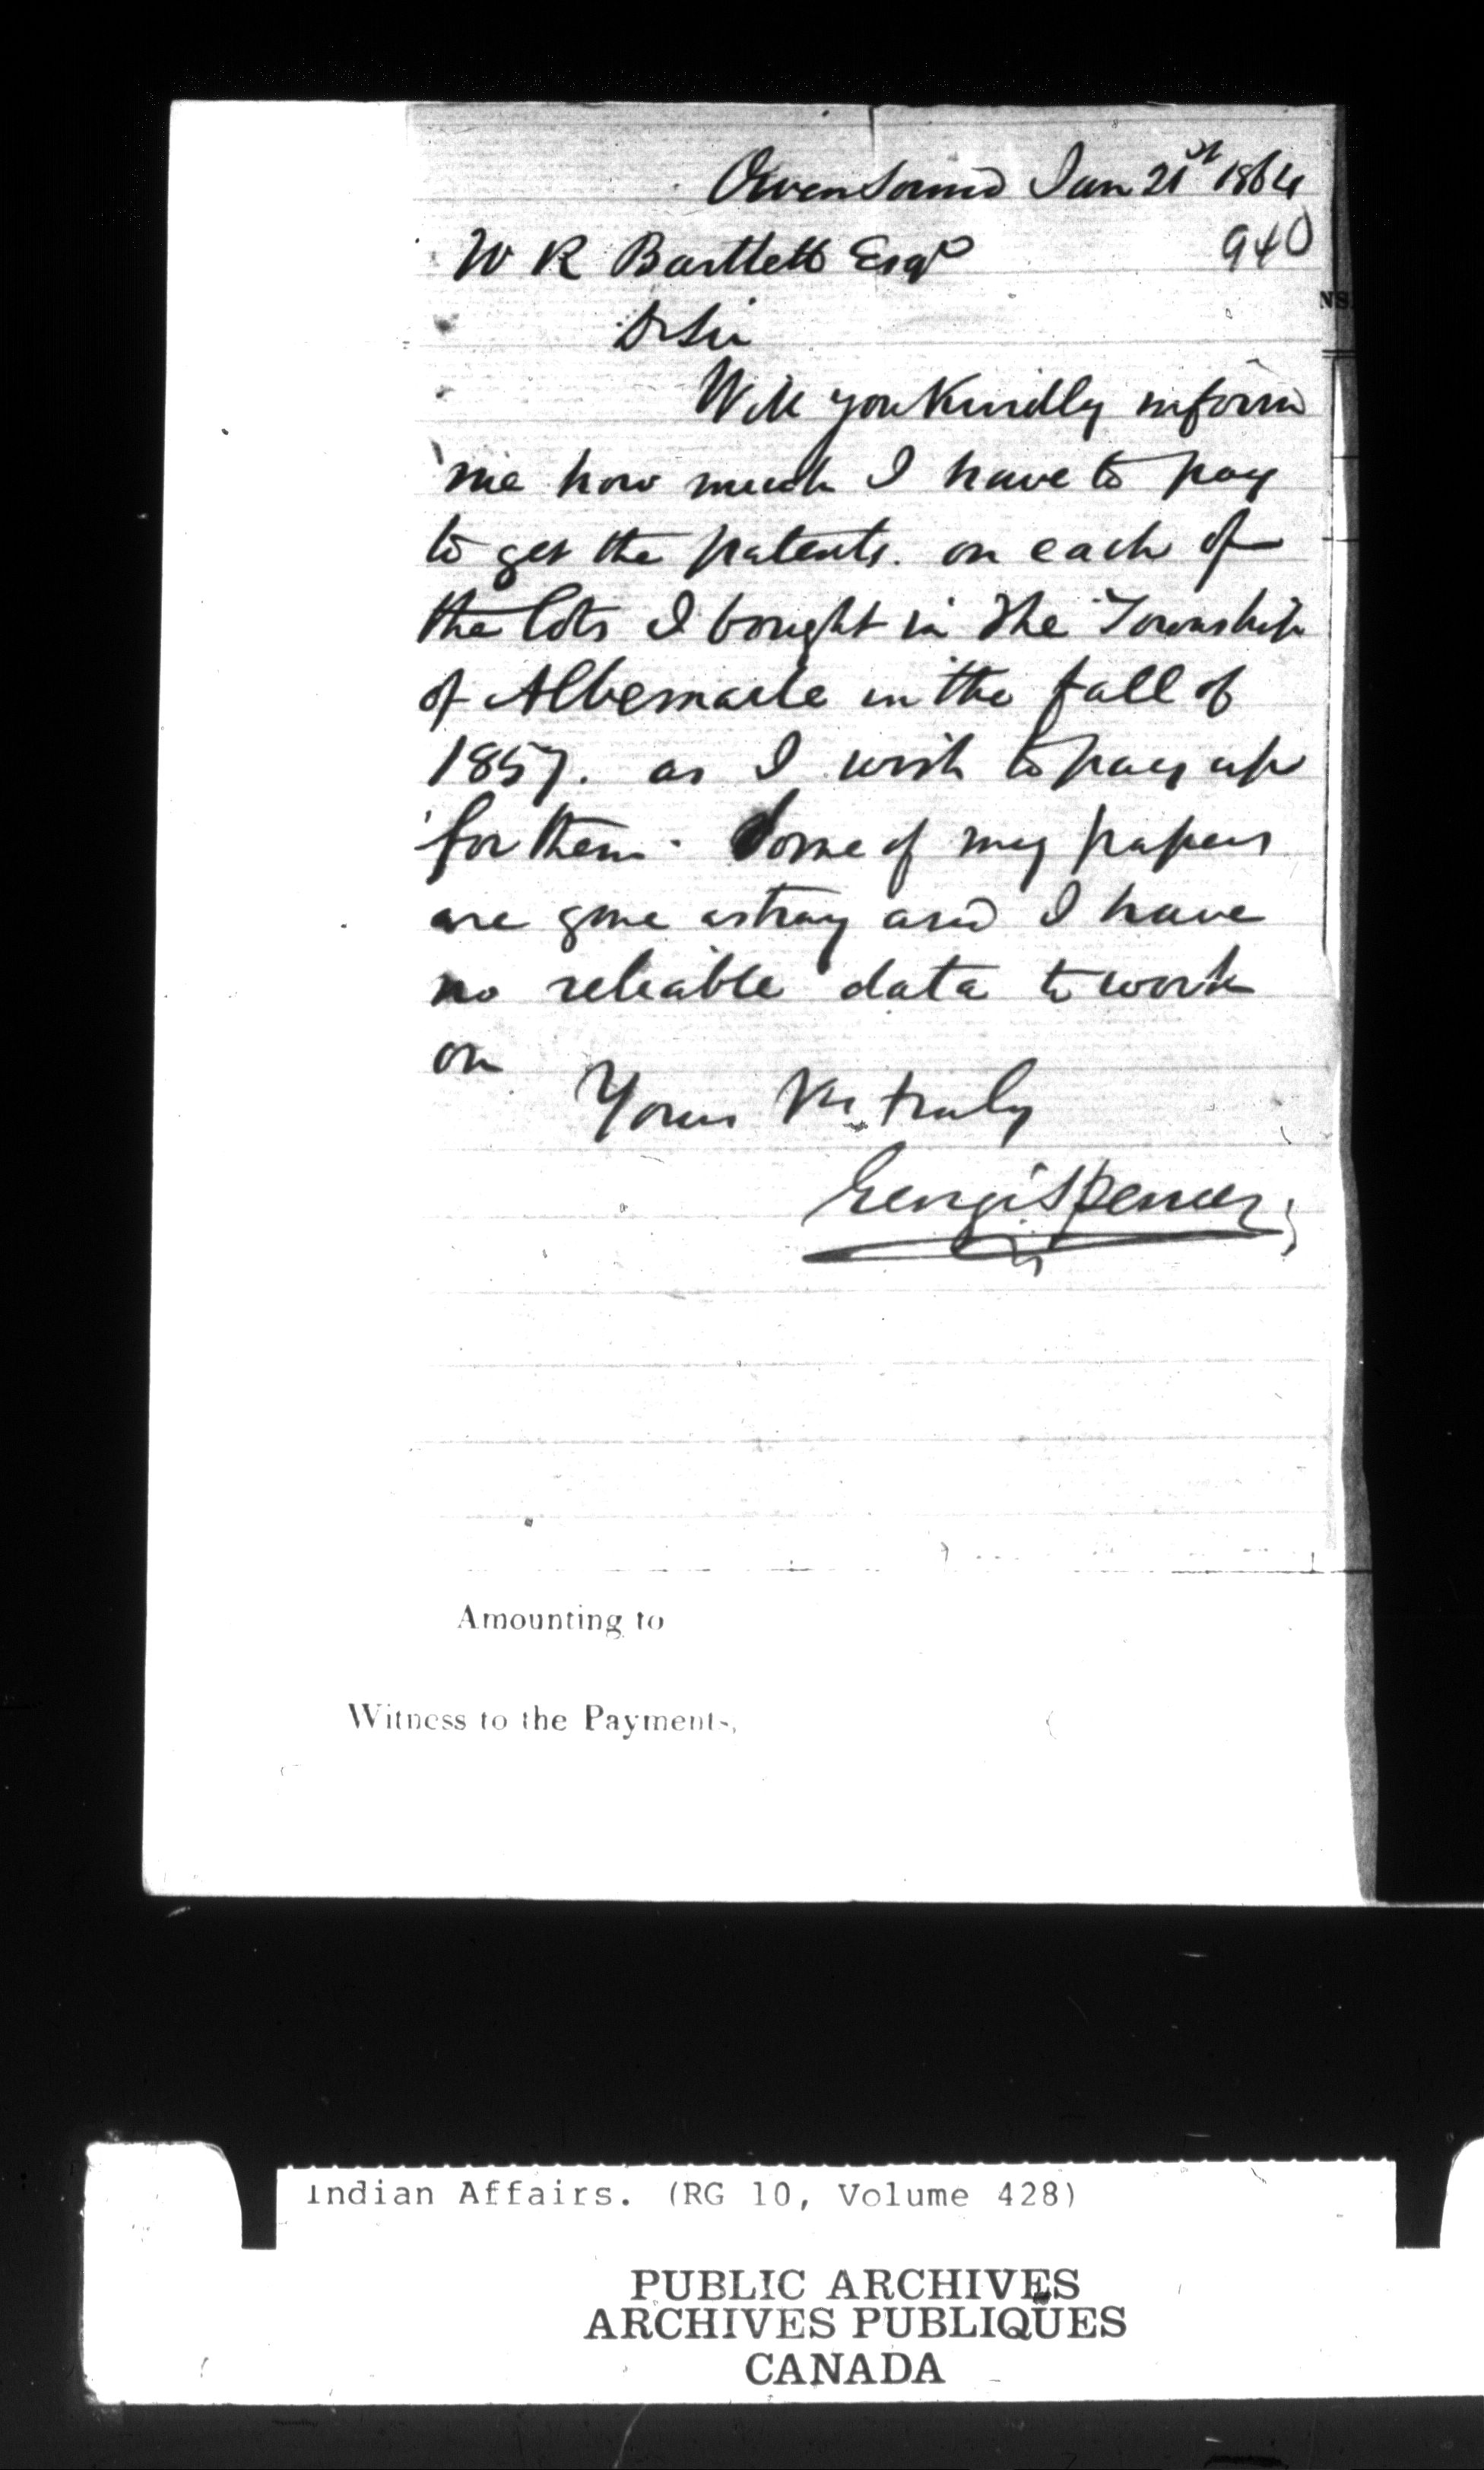 Owen Sound Jan 21st 1864
940
W R Bartlett Esqr
NS
Dr Sir
Will you Kindly inform
me how much I have to pay
to get the patents. on each of
the lots I bought in The Township
of Albemarle in the fall of
1857. as I wish to pay up
for them. Some of my papers
are gone astray and I have
no reliable data to work
on
Yours truly
George Spencer
Amounting to
Witness to the Payments,
Indian Affairs. (RG 10, Volume 428)
PUBLIC ARCHIVES
ARCHIVES PUBLIQUES
CANADA